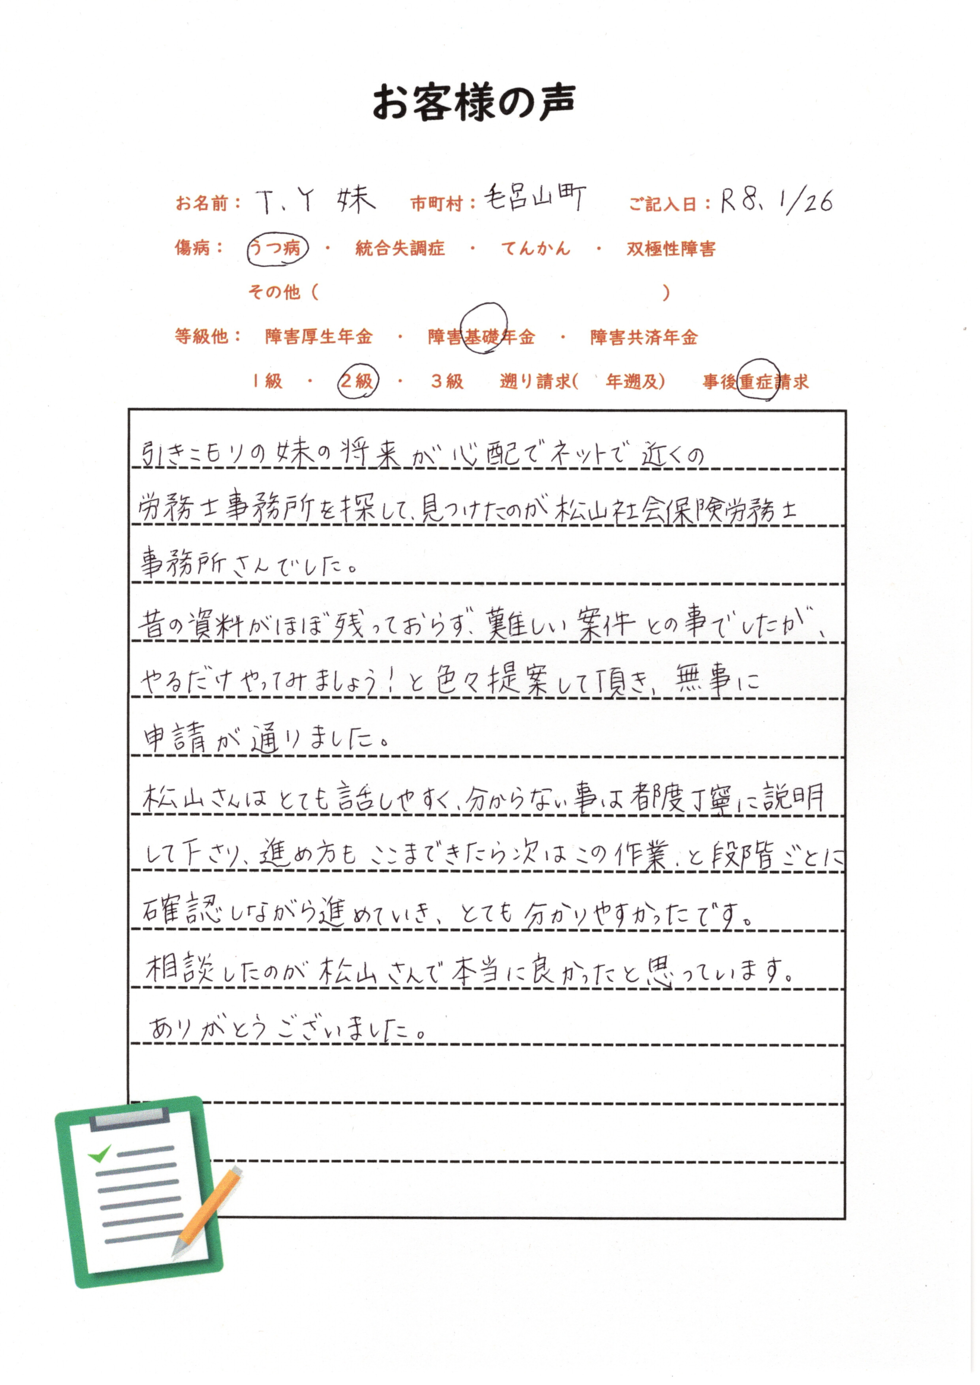 お客様の声
お名前: T.Y 妹 市町村: 毛呂山町 ご記入日: R8、1/26
傷病: うつ病 ・ 統合失調症 ・ てんかん ・ 双極性障害
その他 ( )
等級他: 障害厚生年金 ・ 障害基礎年金 ・ 障害共済年金
1級 ・ 2級 ・ 3級 遡り請求( 年遡及) 事後重症請求
引きこもりの妹の将来が心配でネットで近くの
労務士事務所を探して、見つけたのが松山社会保険労務士
事務所さんでした。
昔の資料がほぼ残っておらず、難しい案件との事でしたが、
やるだけやってみましょう!と色々提案して頂き、無事に
申請が通りました。
松山さんはとても話しやすく、分からない事は都度丁寧に説明
して下さり、進め方もここまできたら次はこの作業、と段階ごとに
確認しながら進めていき、とても分かりやすかったです。
相談したのが松山さんで本当に良かったと思っています。
ありがとうございました。